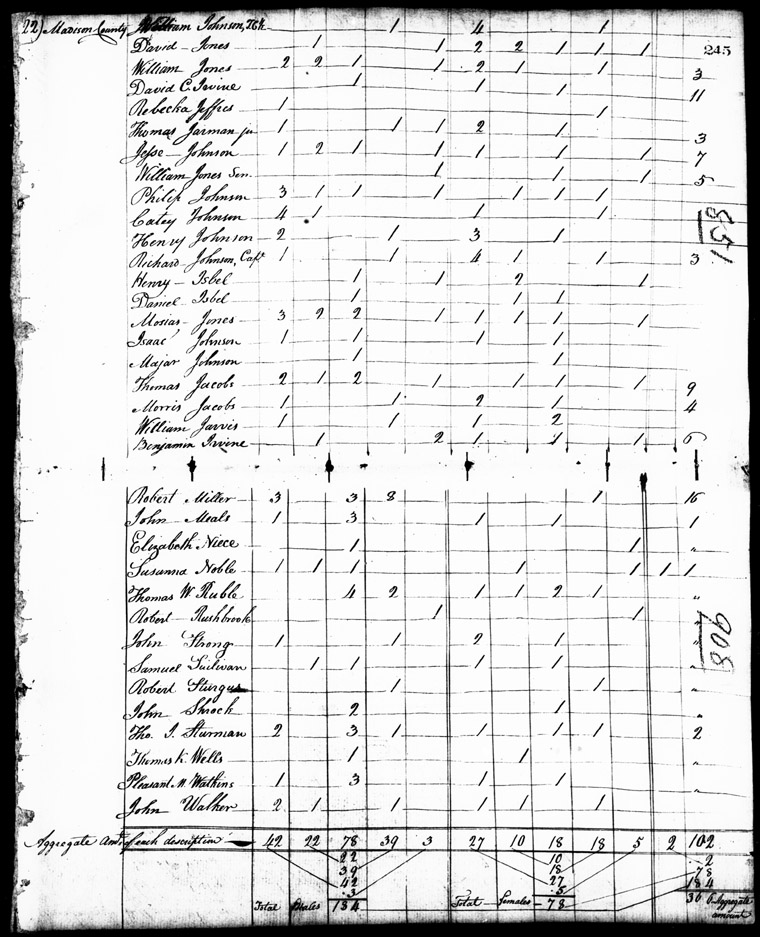 22) Madison County William Johnson, 1 4 1
David Jones 1 1 2 2 1 1 1 245
William Jones 2 2 1 1 2 1 1 3
David C. Irvine 1 1 1 11
Rebecka Jeffres 1 1
Thomas Jarman ju 1 1 1 2 1 3
Jesse Johnson 1 2 1 1 1 1 1 7
William Jones Sen. 1 1 1 5
Philip Johnson 3 1 1 1 1 1 1
Catey Johnson 4 1 1 1
Henry Johnson 2 1 3 1
Richard Johnson, Capt 1 1 4 1 1 3
851
Henry Isbel 1 1 2 1
Daniel Isbel 1 1 1 1
Mosias Jones 3 2 2 1 1 1 1 1
Isaac Johnson 1 1 1 1
Majar Johnson 1 1
Thomas Jacobs 2 1 2 1 1 1 1 9
Morris Jacobs 1 1 2 1 4
William Jarvis 1 1 1 2
Benjamin Irvine 1 2 1 1 1 6
Robert Miller 3 3 8 1 16
John Meals 1 3 1 1 1
Elizabeth Niece 1 1 "
Susanna Noble 1 1 1 1 1 1 1
Thomas W Ruble 4 2 1 1 2 1 "
Robert Rushbrook 1 1 "
John Strong 1 1 2 1 "
908
Samuel Sulivan 1 1 1 1 "
Robert Sturgus 1 1 "
John Shrock 2 1 "
Tho. J. Sturman 2 3 1 1 1 1 2
Thomas K. Wells 1 1 "
Pleasant M. Watkins 1 3 1 1 "
John Walker 2 1 1 1 1 1
Aggregate amt. of each description 42 22 78 39 3 27 10 18 18 5 2 102
22 10 2
39 18 78
42 27 184
3 5
Total Males 184 Total Females 78 36 6 Aggregate
amount